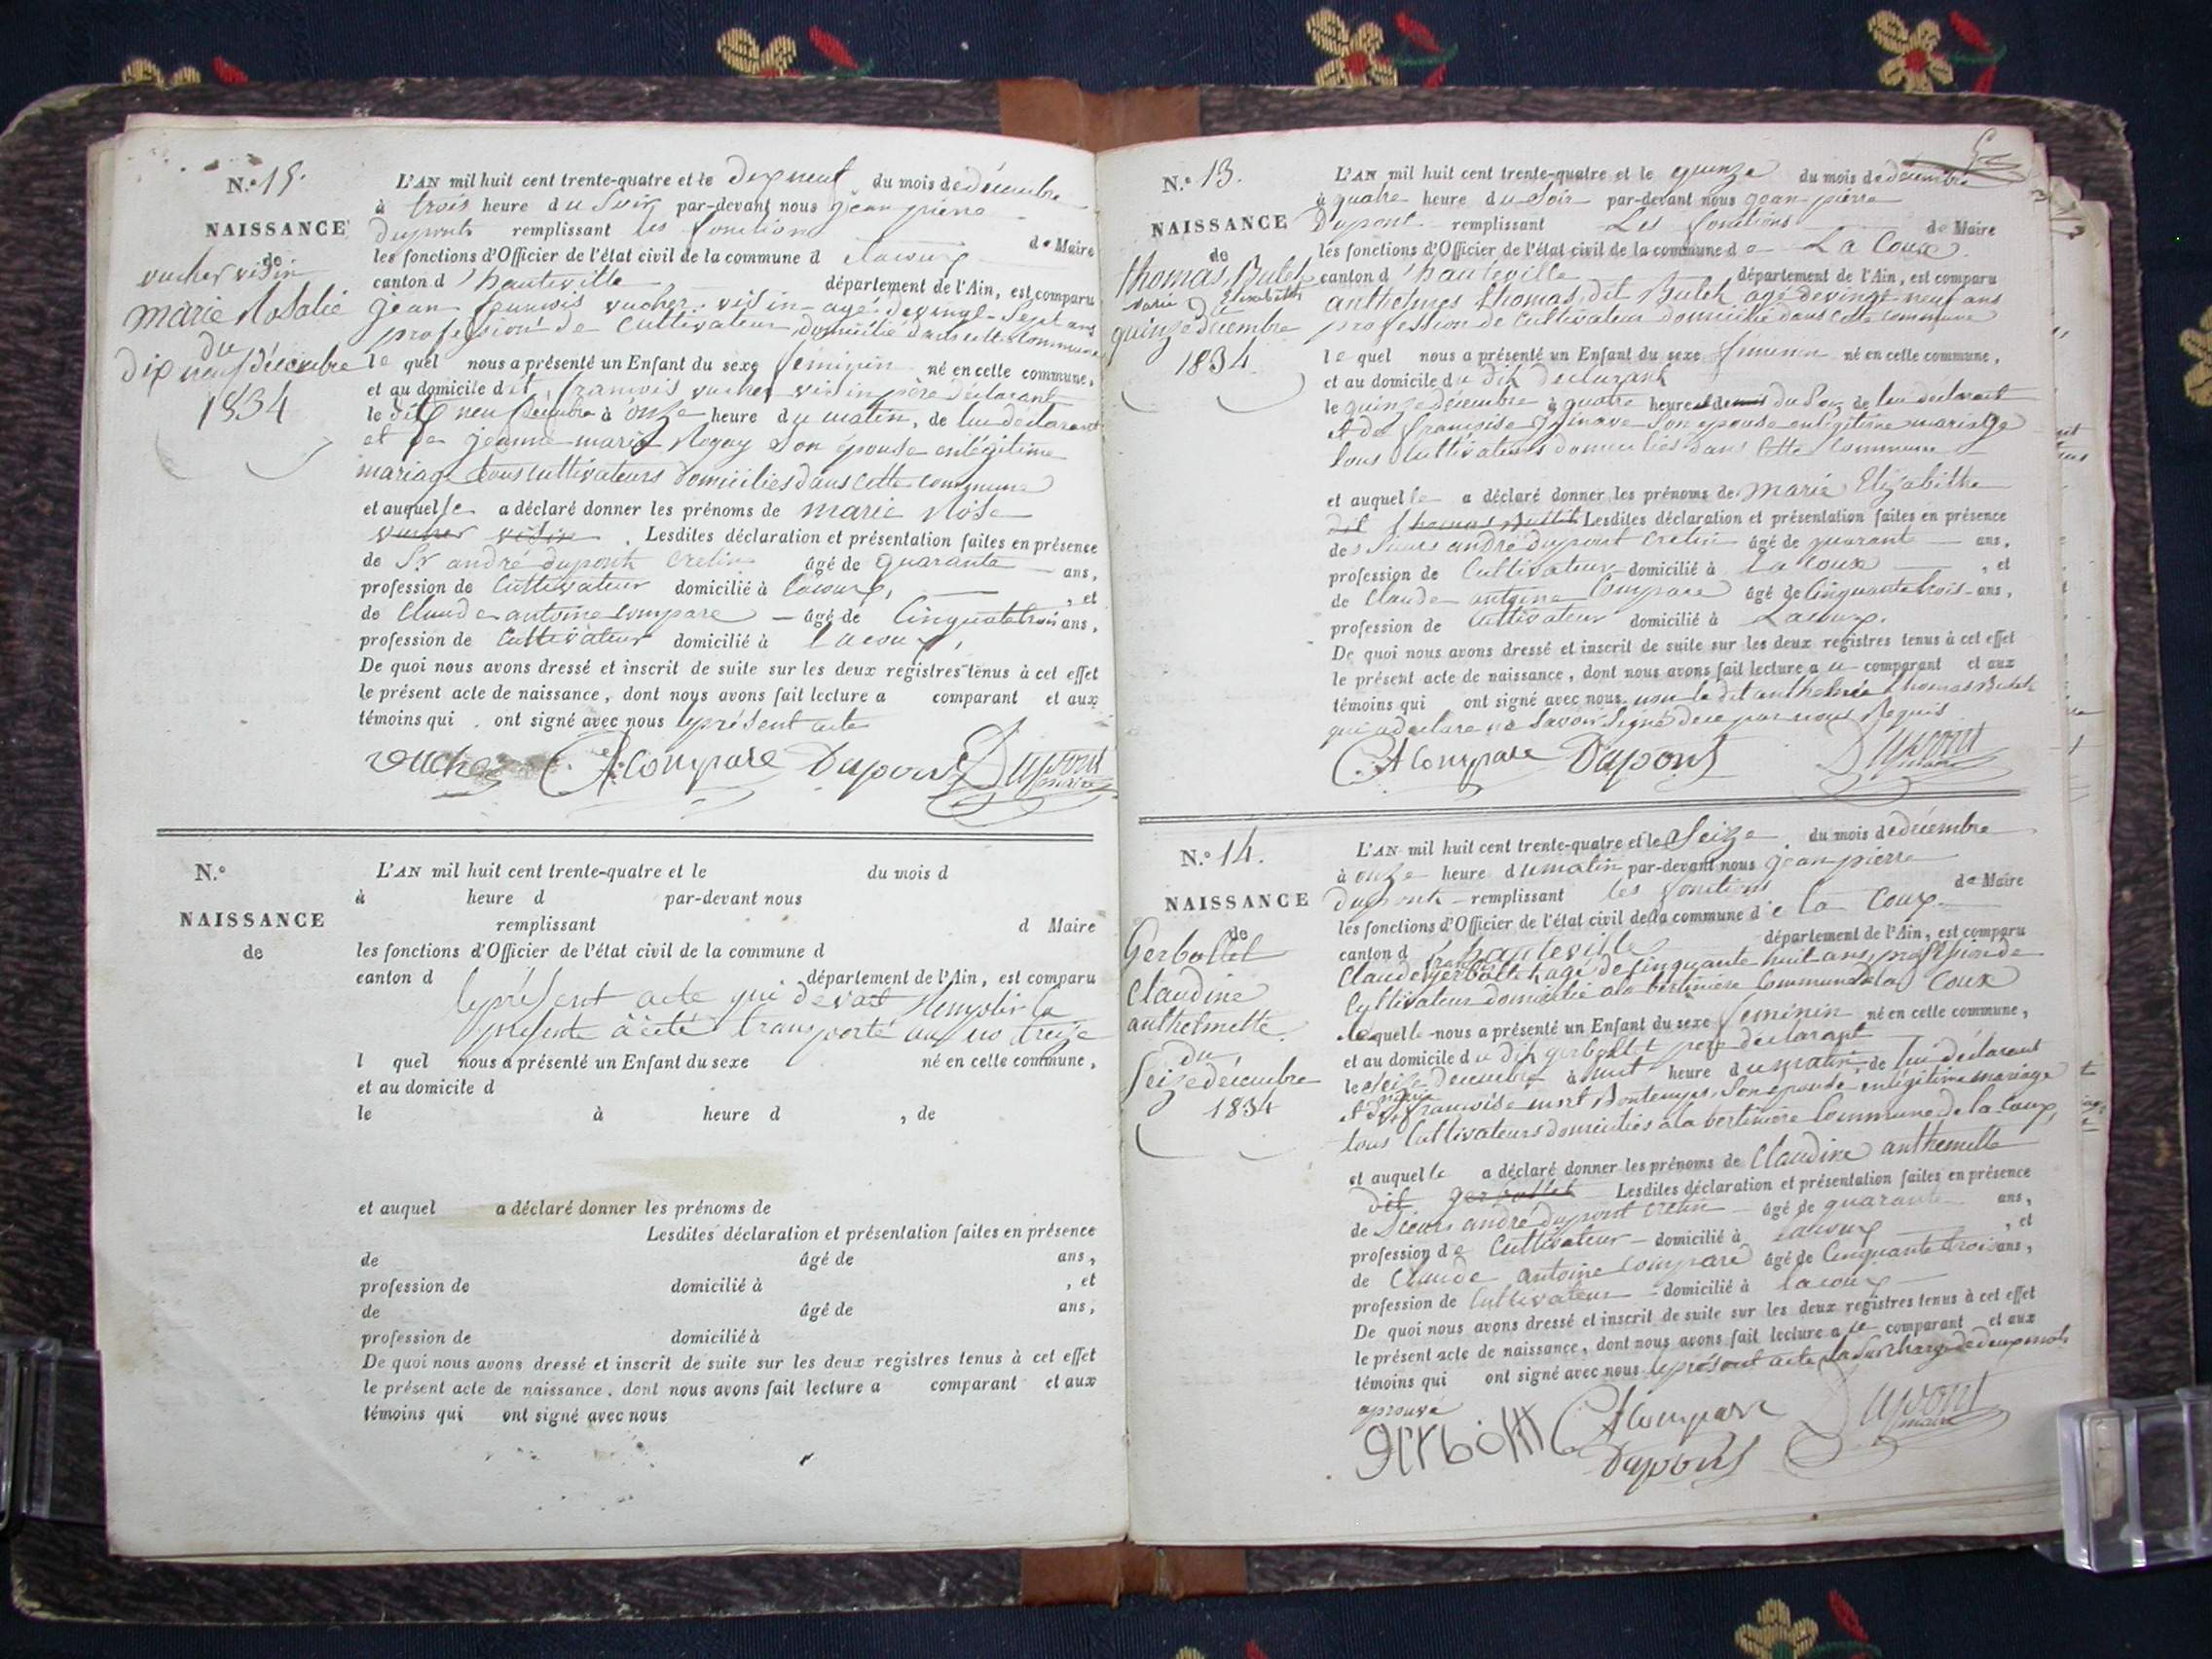 N.o 15.
NAISSANCE
de
vucher visin
marie Rosalie
du
dix neuf décembre
1834
L'AN mil huit cent trente-quatre et le dix neuf du mois de décembre
à trois heure du Soir par-devant nous jean pierre
Dupont remplissant les fonctions de Maire
les fonctions d'Officier de l'état civil de la commune d lacoux
canton d'hauteville département de l'Ain, est comparu
jean francois vucher visin agé de vingt-Sept ans
profession de Cultivateur domicilié dans cette commune
le quel nous a présenté un Enfant du sexe féminin né en celle commune,
et au domicile dit françois vucher visin père déclarant
le dix neuf décembre à onze heure du matin, de lui déclarant
et de jeanne marie Rogay Son épouse en légitime
mariage tous cultivateurs domiciliés dans cette commune
et auquelle a déclaré donner les prénoms de marie Rose
vucher visin . Lesdites déclaration et présentation faites en présence
de Sr andré dupont cretin âgé de quarante ans,
profession de Cultivateur domicilié à lacoux, , et
de Claude antoine Compare âgé de Cinquante trois ans,
profession de Cultivateur domicilié à lacoux,
De quoi nous avons dressé et inscrit de suite sur les deux registres tenus à cet effet
le présent acte de naissance, dont nous avons fait lecture a comparant et aux
témoins qui ont signé avec nous le présent acte
vucher C. A Compare Dupont Dupont
maire
N.o
NAISSANCE
de
L'AN mil huit cent trente-quatre et le du mois d
à heure d par-devant nous
remplissant d Maire
les fonctions d'Officier de l'état civil de la commune d
canton d département de l'Ain, est comparu
le présent acte qui devait Remplir la
presente à été transporté au no treize
l quel nous a présenté un Enfant du sexe né en celle commune,
et au domicile d
le à heure d , de
et auquel a déclaré donner les prénoms de
Lesdites déclaration et présentation faites en présence
de âgé de ans,
profession de domicilié à , et
de âgé de ans,
profession de domicilié à
De quoi nous avons dressé et inscrit de suite sur les deux registres tenus à cet effet
le présent acte de naissance, dont nous avons fait lecture a comparant et aux
témoins qui ont signé avec nous
N.o 13.
NAISSANCE
de
thomas, Bulet
Marie Elisabeth
quinze décembre
1834
L'AN mil huit cent trente-quatre et le quinze du mois de décembre
à quatre heure du Soir par-devant nous jean pierre
Dupont remplissant Les fonctions de Maire
les fonctions d'Officier de l'état civil de la commune de La Coux
canton d'hauteville département de l'Ain, est comparu
anthelmes thomas, dit Bulet agé de vingt neuf ans
profession de Cultivateur domicilié dans cette commune
le quel nous a présenté un Enfant du sexe féminin né en celle commune,
et au domicile du dit déclarant
le quinze décembre à quatre heure du Soir, de lui déclarant
et de françoise Son epouse en légitime mariage
tous Cultivateurs domiciliés dans cette Commune
et auquelle a déclaré donner les prénoms de marie Elizabithe
dit thomas Bullet Lesdites déclaration et présentation faites en présence
des Sieurs andré dupont cretin âgé de quarante ans,
profession de Cultivateur domicilié à La Coux , et
de Claude antoine Compare âgé de Cinquante trois ans,
profession de Cultivateur domicilié à Lacoux.
De quoi nous avons dressé et inscrit de suite sur les deux registres tenus à cet effet
le présent acte de naissance, dont nous avons fait lecture a u comparant et aux
témoins qui ont signé avec nous non le dit anthelme thomas Bulet
qui a déclaré ne Savoir Signé de ce par nous Requis
C. A Compare Dupont Dupont
maire
N.o 14.
NAISSANCE
de
Gerbollet
Claudine
anthelmette
du
Seize décembre
1834
L'AN mil huit cent trente-quatre et le Seize du mois de décembre
à onze heure du matin par-devant nous jean pierre
dupont remplissant les fonctions de Maire
les fonctions d'Officier de l'état civil de la commune de la Coux
canton d'hauteville département de l'Ain, est comparu
Claude gerbollet agé de cinquante huit ans, profession de
Cultivateur domicilié a la bertiniere Commune de la Coux
lequelle nous a présenté un Enfant du sexe féminin né en celle commune,
et au domicile du dit gerbollet père déclarant
le seize décembre à huit heure du matin de lui déclarant
et de françoise Son epouse en légitime mariage
tous Cultivateurs domiciliés a la bertiniere Commune de la Coux,
et auquelle a déclaré donner les prénoms de Claudine anthemelle
dit gerbollet Lesdites déclaration et présentation faites en présence
de Sieurs andré dupont cretin âgé de quarante ans,
profession de Cultivateur domicilié à lacoux , et
de Claude antoine Compare âgé de Cinquante trois ans,
profession de Cultivateur domicilié à lacoux
De quoi nous avons dressé et inscrit de suite sur les deux registres tenus à cet effet
le présent acte de naissance, dont nous avons fait lecture a u comparant et aux
témoins qui ont signé avec nous le présent acte la Surcharge de deux mots
aprouvé
gerbollt C. A Compare Dupont
maire
Dupont